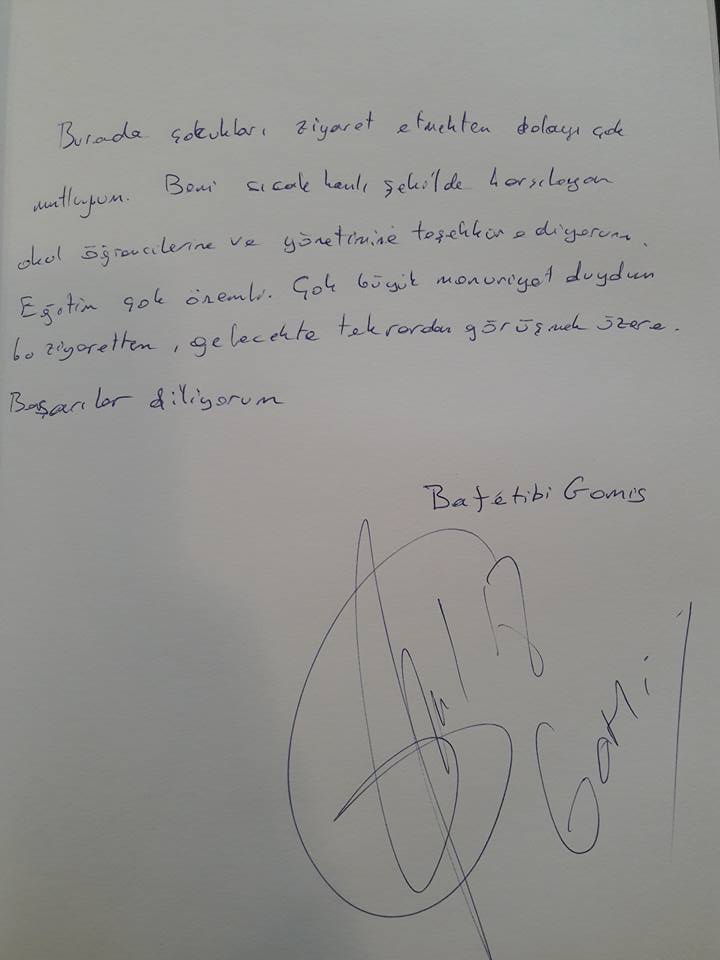 Burada çokukları ziyaret etmekten dolayı çok
mutluyum. Beni sıcak kanlı şekilde karşılayan
okul öğrencilerine ve yönetimine teşekkür ediyorum.
Eğitim çok önemli. Çok büyük memnuniyet duydum
bu ziyaretten, gelecekte tekrardan görüşmek üzere.
Başarılar diliyorum
Bafétibi Gomis
Gomis